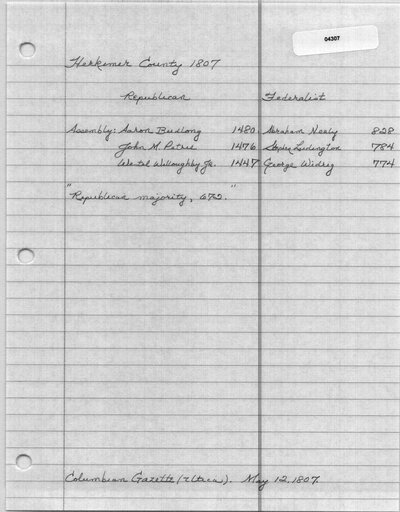 04307
Herkimer County 1807
Republican Federalist
Assembly: Aaron Budlong 1480 Abraham Neely 828
John M. Petrie 1476 Ludington 784
Westel Willoughby Jr. 1447 George Widrig 774
"Republican majority, 672."
Columbian Gazette (Utica). May 12, 1807